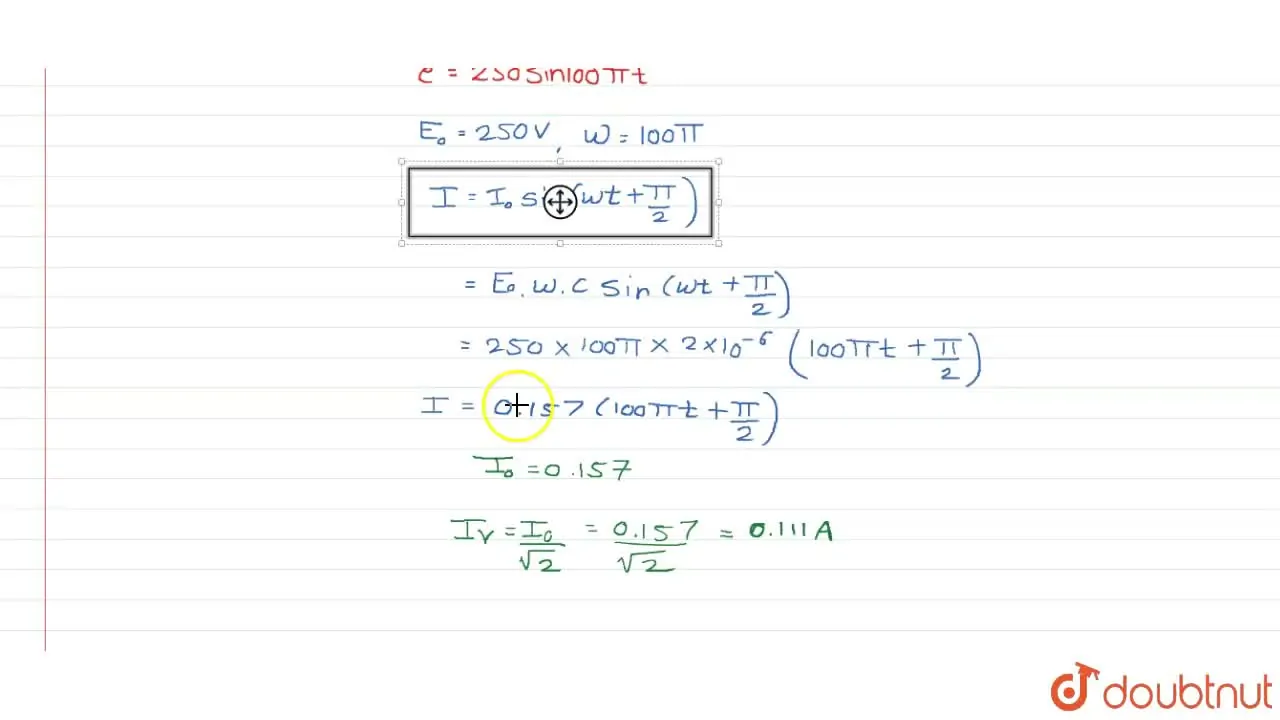 e = 250 sin100πt
E₀ = 250V, W = 100π
I = I₀ s (wt + π/2)
= E₀. W. C sin (wt + π/2)
= 250 × 100π × 2×10⁻⁶ (100πt + π/2)
I = 0.157 (100πt + π/2)
I₀ = 0.157
Iᵥ = I₀/√2 = 0.157/√2 = 0.111A
doubtnut